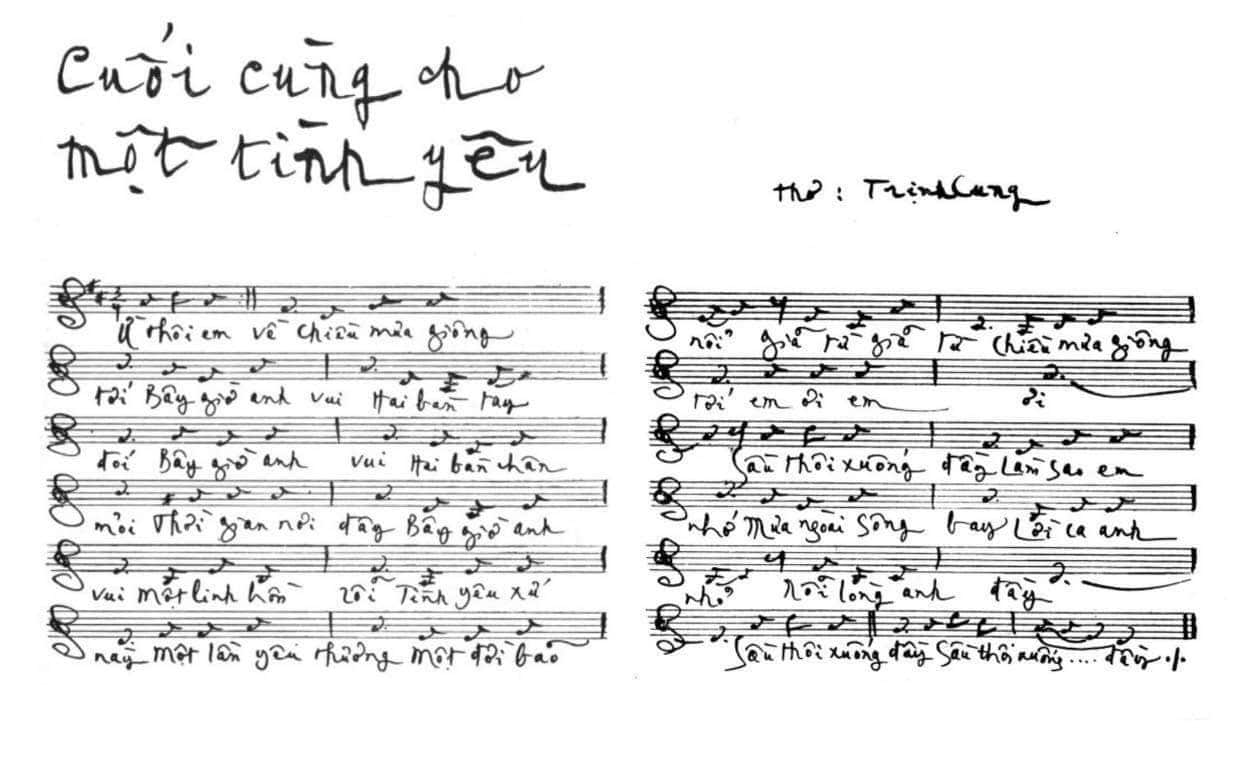 Cuối cùng cho
một tình yêu
Thơ : Trịnh Cung
Ừ thôi em về chiều mưa giông
tới Bây giờ anh vui Hai bàn tay
đói Bây giờ anh vui Hai bàn chân
mỏi Thời gian nơi đây Bây giờ anh
vui một linh hồn rỗi Tình yêu xứ
này Một lần yêu thương Một đời bão
nổi giã từ giã từ chiều mưa giông
tới em ơi em ơi
Sầu thôi xuống đầy Làm sao em
nhớ Mưa ngoài sông bay Lời ca anh
nhỏ Nỗi lòng anh đây
Sầu thôi xuống đầy Sầu thôi xuống .... đầy ./.